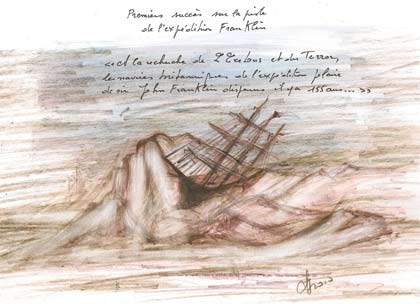 Premiers succès sur la piste
de l'expédition Franklin
<< et la recherche de l'Erebus et du Terror,
les navires britanniques de l'expédition polaire
de sir John Franklin disparus il y a 155 ans... >>